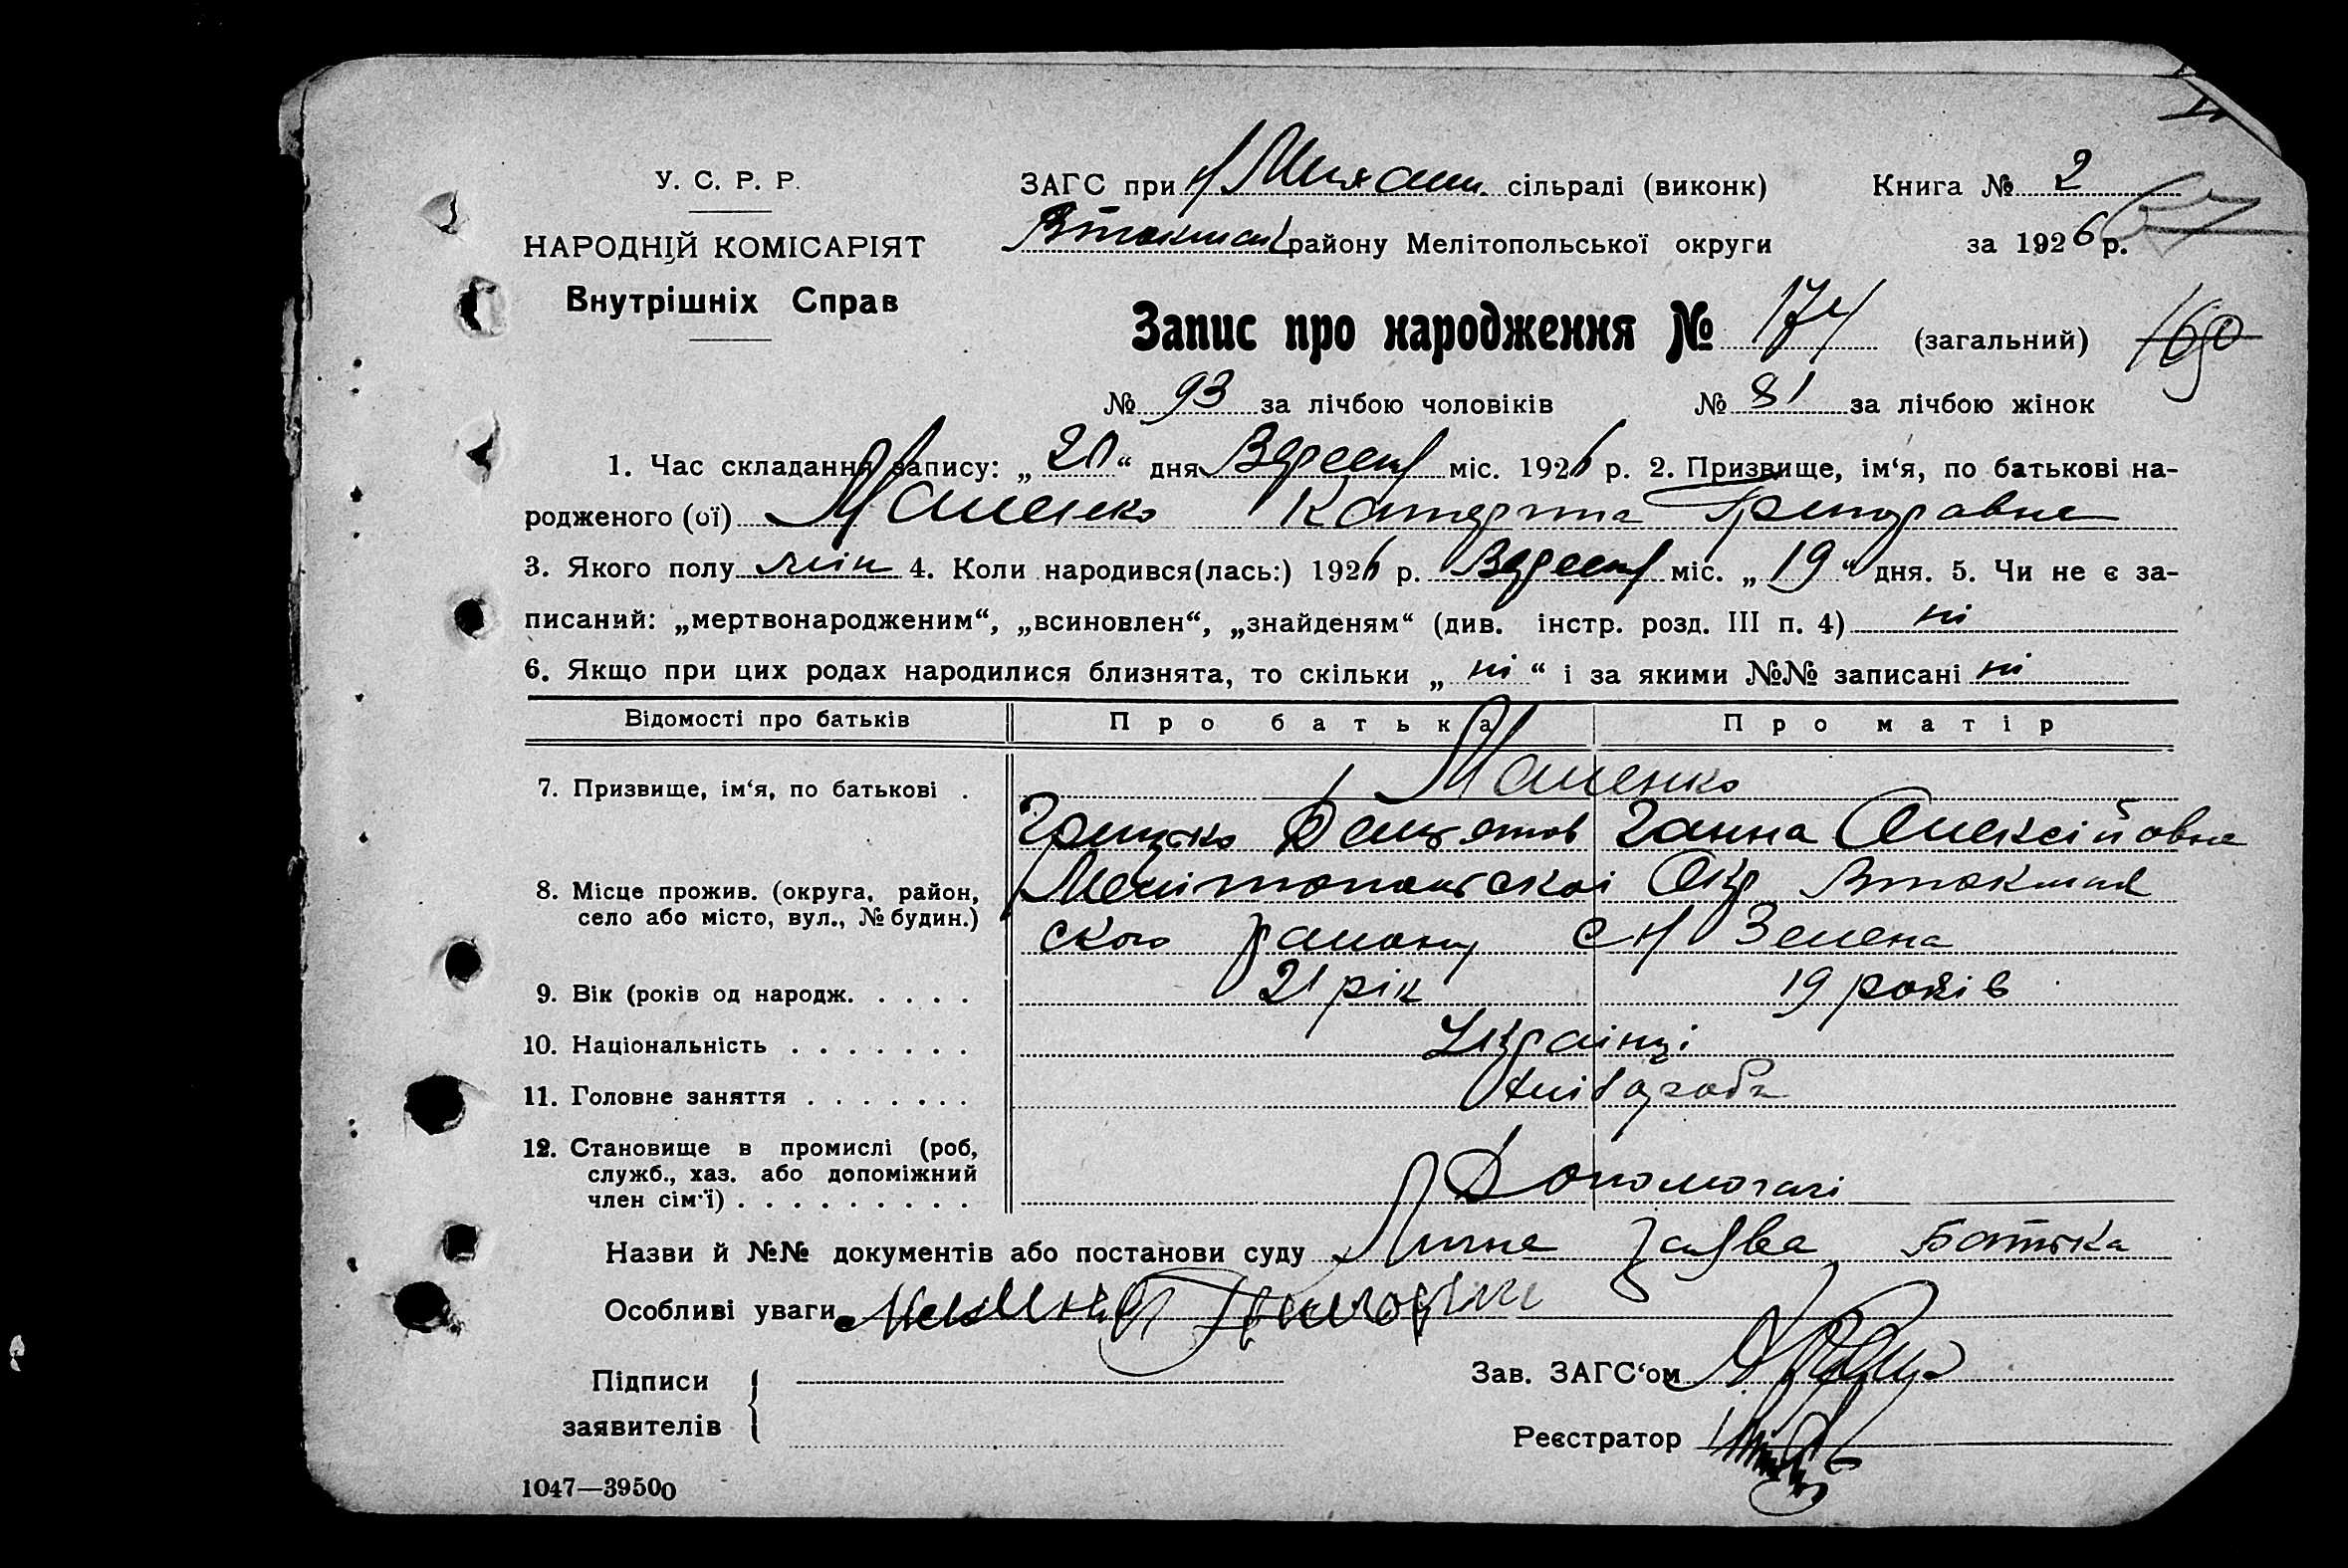 У. С. Р. Р.
НАРОДНІЙ КОМІСАРІЯТ
Внутрішніх Справ
ЗАГС при сільраді (виконк)
Втокмак району Мелітопольської округи
Книга № 2
за 1926 р.
67
Запис про народження № 174 (загальний)
160
№ 93 за лічбою чоловіків № 81 за лічбою жінок
1. Час складання запису: „ 20 “ дня Вересня міс. 1926 р. 2. Призвище, ім‘я, по батькові на-
родженого (ої) Маценко Катерина Григоравна
3. Якого полу жін 4. Коли народився(лась:) 1926 р. Вересня міс. „ 19 “ дня. 5. Чи не є за-
писаний: „мертвонародженим“, „всиновлен“, „знайденям“ (див. інстр. розд. III п. 4) ні
6. Якщо при цих родах народилися близнята, то скільки „ ні “ і за якими №№ записані ні
Відомості про батьків Про батька Про матір
7. Призвище, ім‘я, по батькові . Маценко
Грицько Ганна Олексійовна
8. Місце прожив. (округа, район, село або місто, вул., № будин.) Мелітопольскоі Окр Втокмац
ского району с Зелена
9. Вік (років од народж. . . . . 21 рік 19 років
10. Національність . . . . . . . Українці
11. Головне заняття . . . . . . . Хліборобн
12. Становище в промислі (роб, служб., хаз. або допоміжний член сім‘ї) . . . . . . . . . Допомогачі
Назви й №№ документів або постанови суду Лична заява Батька
Особливі уваги
Підписи заявителів
Зав. ЗАГС‘ом
Реєстратор
1047—39500